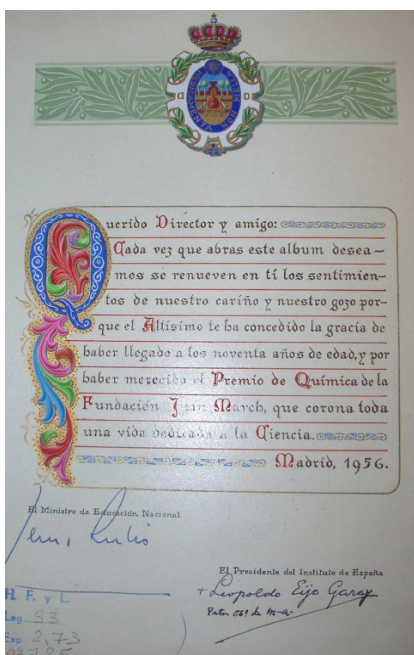 Querido Director y amigo:
Cada vez que abras este album desea-
mos se renueven en tí los sentimien-
tos de nuestro cariño y nuestro gozo por-
que el Altísimo te ha concedido la gracia de
haber llegado a los noventa años de edad, y por
haber merecido el Premio de Química de la
Fundación Juan March, que corona toda
una vida dedicada a la Ciencia.
Madrid, 1956.
El Ministro de Educación Nacional
Rubio
El Presidente del Instituto de España
+ Leopoldo Eijo Garay
H. F. y L.
Leg 33
Exp 2,73